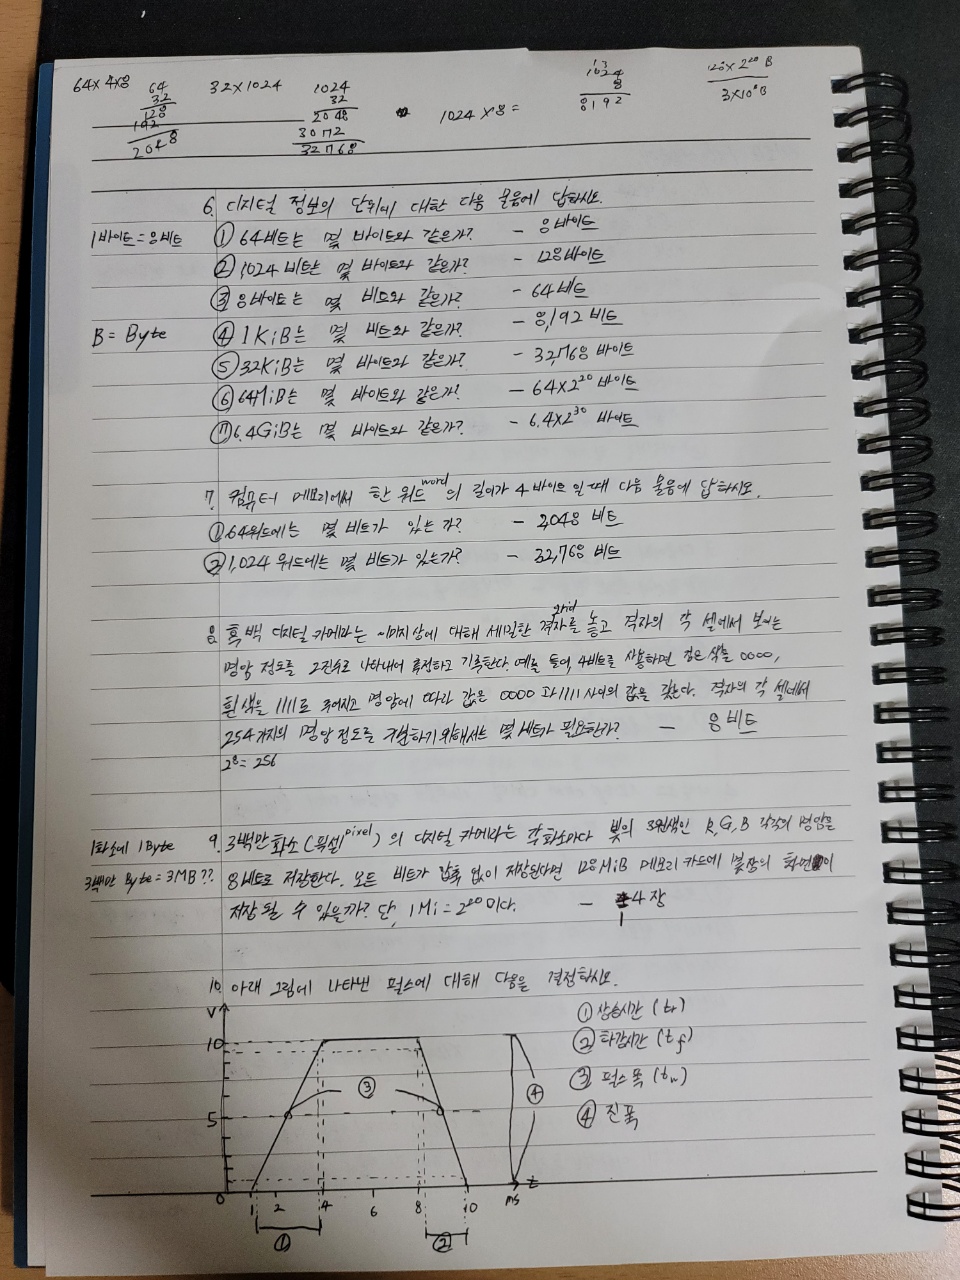 64×4×8
64
32
128
192
2048
32×1024
1024
32
2048
3072
32768
1024×8=
1024
8
8192
128×2²⁰ B
3×10⁶B
6. 디지털 정보의 단위에 대한 다음 물음에 답하시오.
1바이트=8비트
① 64비트는 몇 바이트와 같은가? - 8바이트
② 1,024 비트는 몇 바이트와 같은가? - 128바이트
③ 8바이트는 몇 비트와 같은가? - 64비트
B = Byte
④ 1KiB는 몇 비트와 같은가? - 8,192 비트
⑤ 32KiB는 몇 바이트와 같은가? - 32,768 바이트
⑥ 64MiB는 몇 바이트와 같은가? - 64×2²⁰ 바이트
⑦ 6.4GiB는 몇 바이트와 같은가? - 6.4×2³⁰ 바이트
7. 컴퓨터 메모리에서 한 워드word의 길이가 4 바이트일 때 다음 물음에 답하시오.
① 64워드에는 몇 비트가 있는가? - 2,048 비트
② 1,024 워드에는 몇 비트가 있는가? - 32,768 비트
8. 흑백 디지털 카메라는 이미지상에 대해 세밀한 격자grid를 놓고 격자의 각 셀에서 보이는
명암 정도를 2진수로 나타내어 측정하고 기록한다. 예를 들어, 4비트를 사용하면 검은색을 0000,
흰색을 1111로 주어지고 명암에 따라 값은 0000과 1111 사이의 값을 갖는다. 격자의 각 셀에서
254가지의 명암 정도를 구분하기 위해서는 몇 비트가 필요한가? - 8비트
2⁸ = 256
1화소에 1Byte
3백만 Byte = 3MB??
9. 3백만 화소(픽셀pixel)의 디지털 카메라는 각 화소마다 빛의 3원색인 R, G, B 각각의 명암을
8비트로 저장한다. 모든 비트가 압축 없이 저장된다면 128MiB 메모리 카드에 몇 장의 화면이
저장될 수 있을까? 단, 1Mi = 2²⁰이다. - 14장
10. 아래 그림에 나타낸 펄스에 대해 다음을 결정하시오.
① 상승시간 (tr)
② 하강시간 (tf)
③ 펄스 폭 (tw)
④ 진폭
V
10
③
④
5
0
1 2 4 6 8 10 ms t
① ②